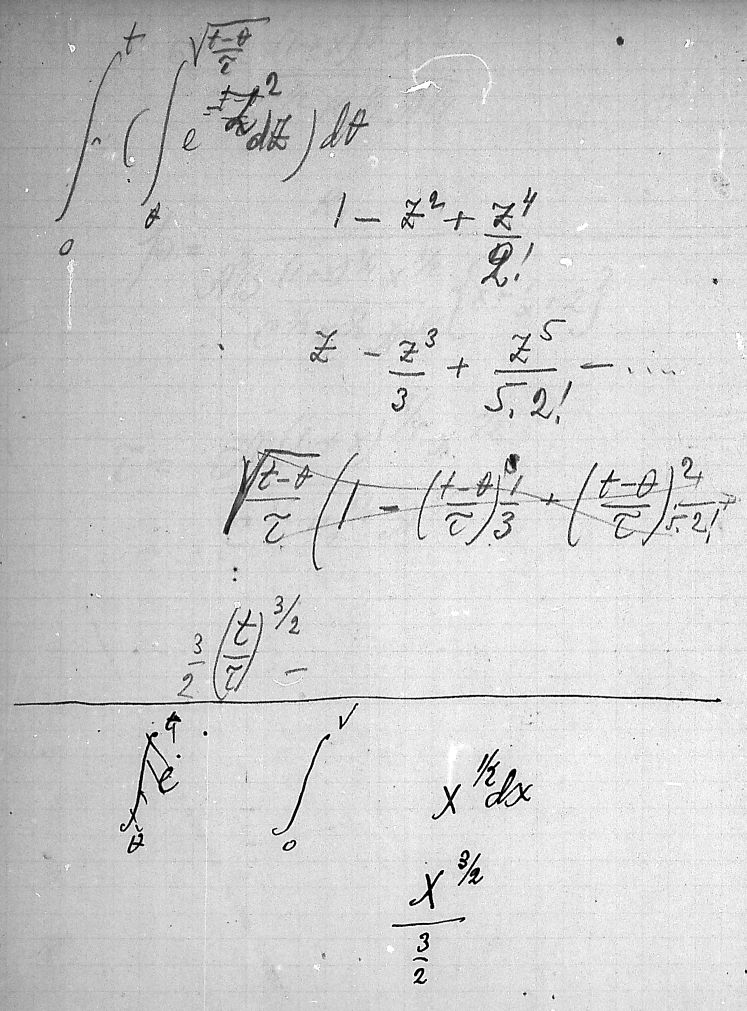 ∫₀ᵗ ( ∫₀^√((t-θ)/τ) e^(-z²) dz ) dθ
1 - z² + z⁴/2!
z - z³/3 + z⁵/(5·2!) - ....
√((t-θ)/τ) (1 - ((t-θ)/τ) 1/3 + ((t-θ)/τ)² 1/(5·2!)
3/2 (t/τ)^(3/2) -
∫₀^√ x^(1/2) dx
x^(3/2) / (3/2)